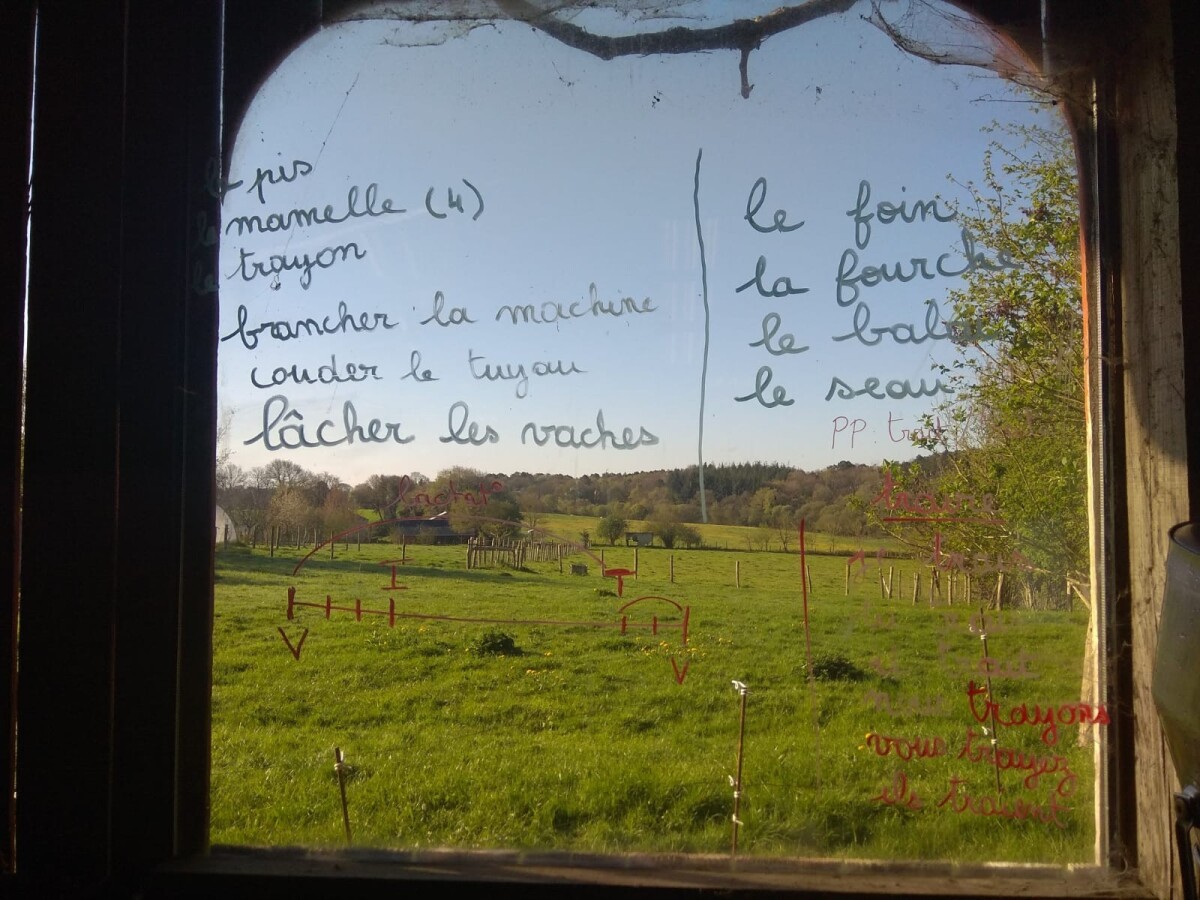 le pis
la mamelle (4)
le trayon
brancher la machine
couder le tuyau
lâcher les vaches
le foin
la fourche
le balai
le seau
pp. trait
traire
trait
nous trayons
vous trayez
ils traient
lactat°
I
T
V
V